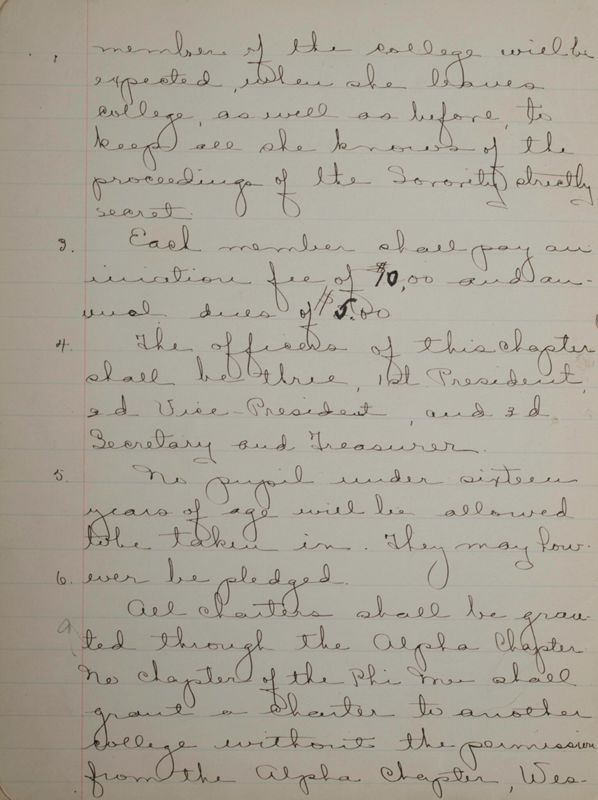 member of the college will be
expected, when she leaves
college, as well as before, to
keep all she knows of the
proceedings of the Sorority strictly
secret.
3. Each member shall pay an
iniciation fee of $10.00 and an-
nual dues of $5.00
4. The officers of this chapter
shall be three, 1st President,
2d Vice-President, and 3d
Secretary and Treasurer.
5. No pupil under sixteen
years of age will be allowed
to be taken in. They may how-
6. ever be pledged.
All charters shall be gran-
ted through the Alpha Chapter.
No chapter of the Phi Mu shall
grant a charter to another
college without the permission
from the Alpha Chapter, Wes-